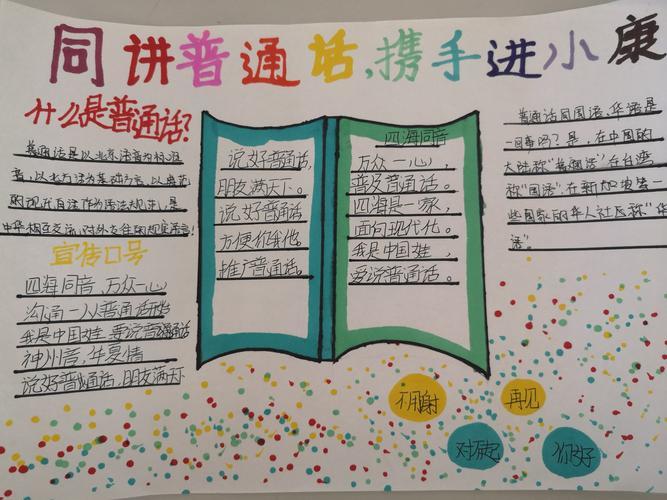 同讲普通话,携手进小康
什么是普通话?
普通话是以北京语音为标准
音,以北方话为基础方言,以典范
的现代白话作为语法规范,是
中华相互交流,对外交往的规定语言
宣传口号
四海同音,万众一心
沟通一从普通话开始
我是中国娃,要说普通话
神州音,华夏情
说好普通话,朋友满天下
说好普通话,
朋友满天下。
说好普通话
方便你我他。
推广普通话。
四海同音
万众一心,
普及普通话。
四海是一家,
面向现代化。
我是中国娃,
爱说普通话。
普通话同国语,华语是
一回事吗?是,在中国的
大陆称"普通话"在台湾
称"国语",在新加坡等一
些国家的华人社区称"华
语"。
不用谢
再见
对不起
你好